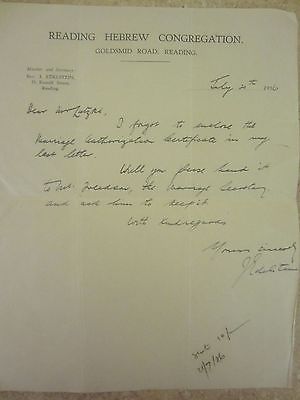 READING HEBREW CONGREGATION.
GOLDSMID ROAD, READING.
Minister and Secretary
Rev. J. EDELSTEIN,
Russell Street,
Reading.
July 20th 1926
Dear
I forgot to enclose the
Marriage Authorization Certificate in my
last letter.
Will you please hand it
to Mr. the Marriage Secretary
and ask him to keep it.
With kind regards
Yours sincerely
J Edelstein